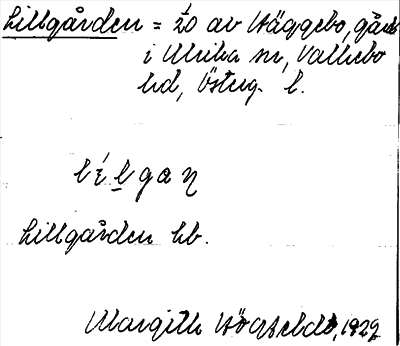 Lillgården = 1/20 av Häggebo, gård
i Ulrika sn, Valkebo
hd, Österg. l.
Lillgården hb.
Margith Högfeldt, 1929